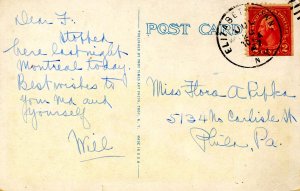 Dear F.
Stopped
here last night
Montreal today.
Best wishes to
your Ma and
yourself
Will
POST CARD
ELIZABETH
N
2
Miss Flora A Pipka
5134 No Carlisle St
Phila, Pa.